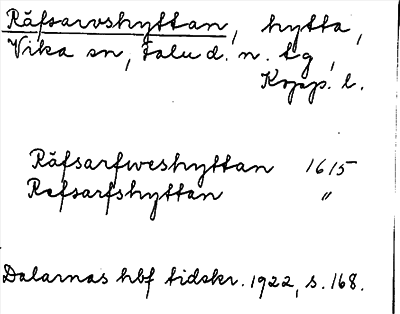 Räfsarvshyttan, hytta,
Vika sn, Falu d. n. tg,
Kopp. l.
Räfsarfweshyttan 1615
Refsarfshyttan "
Dalarnas hbf tidskr. 1922, s. 168.